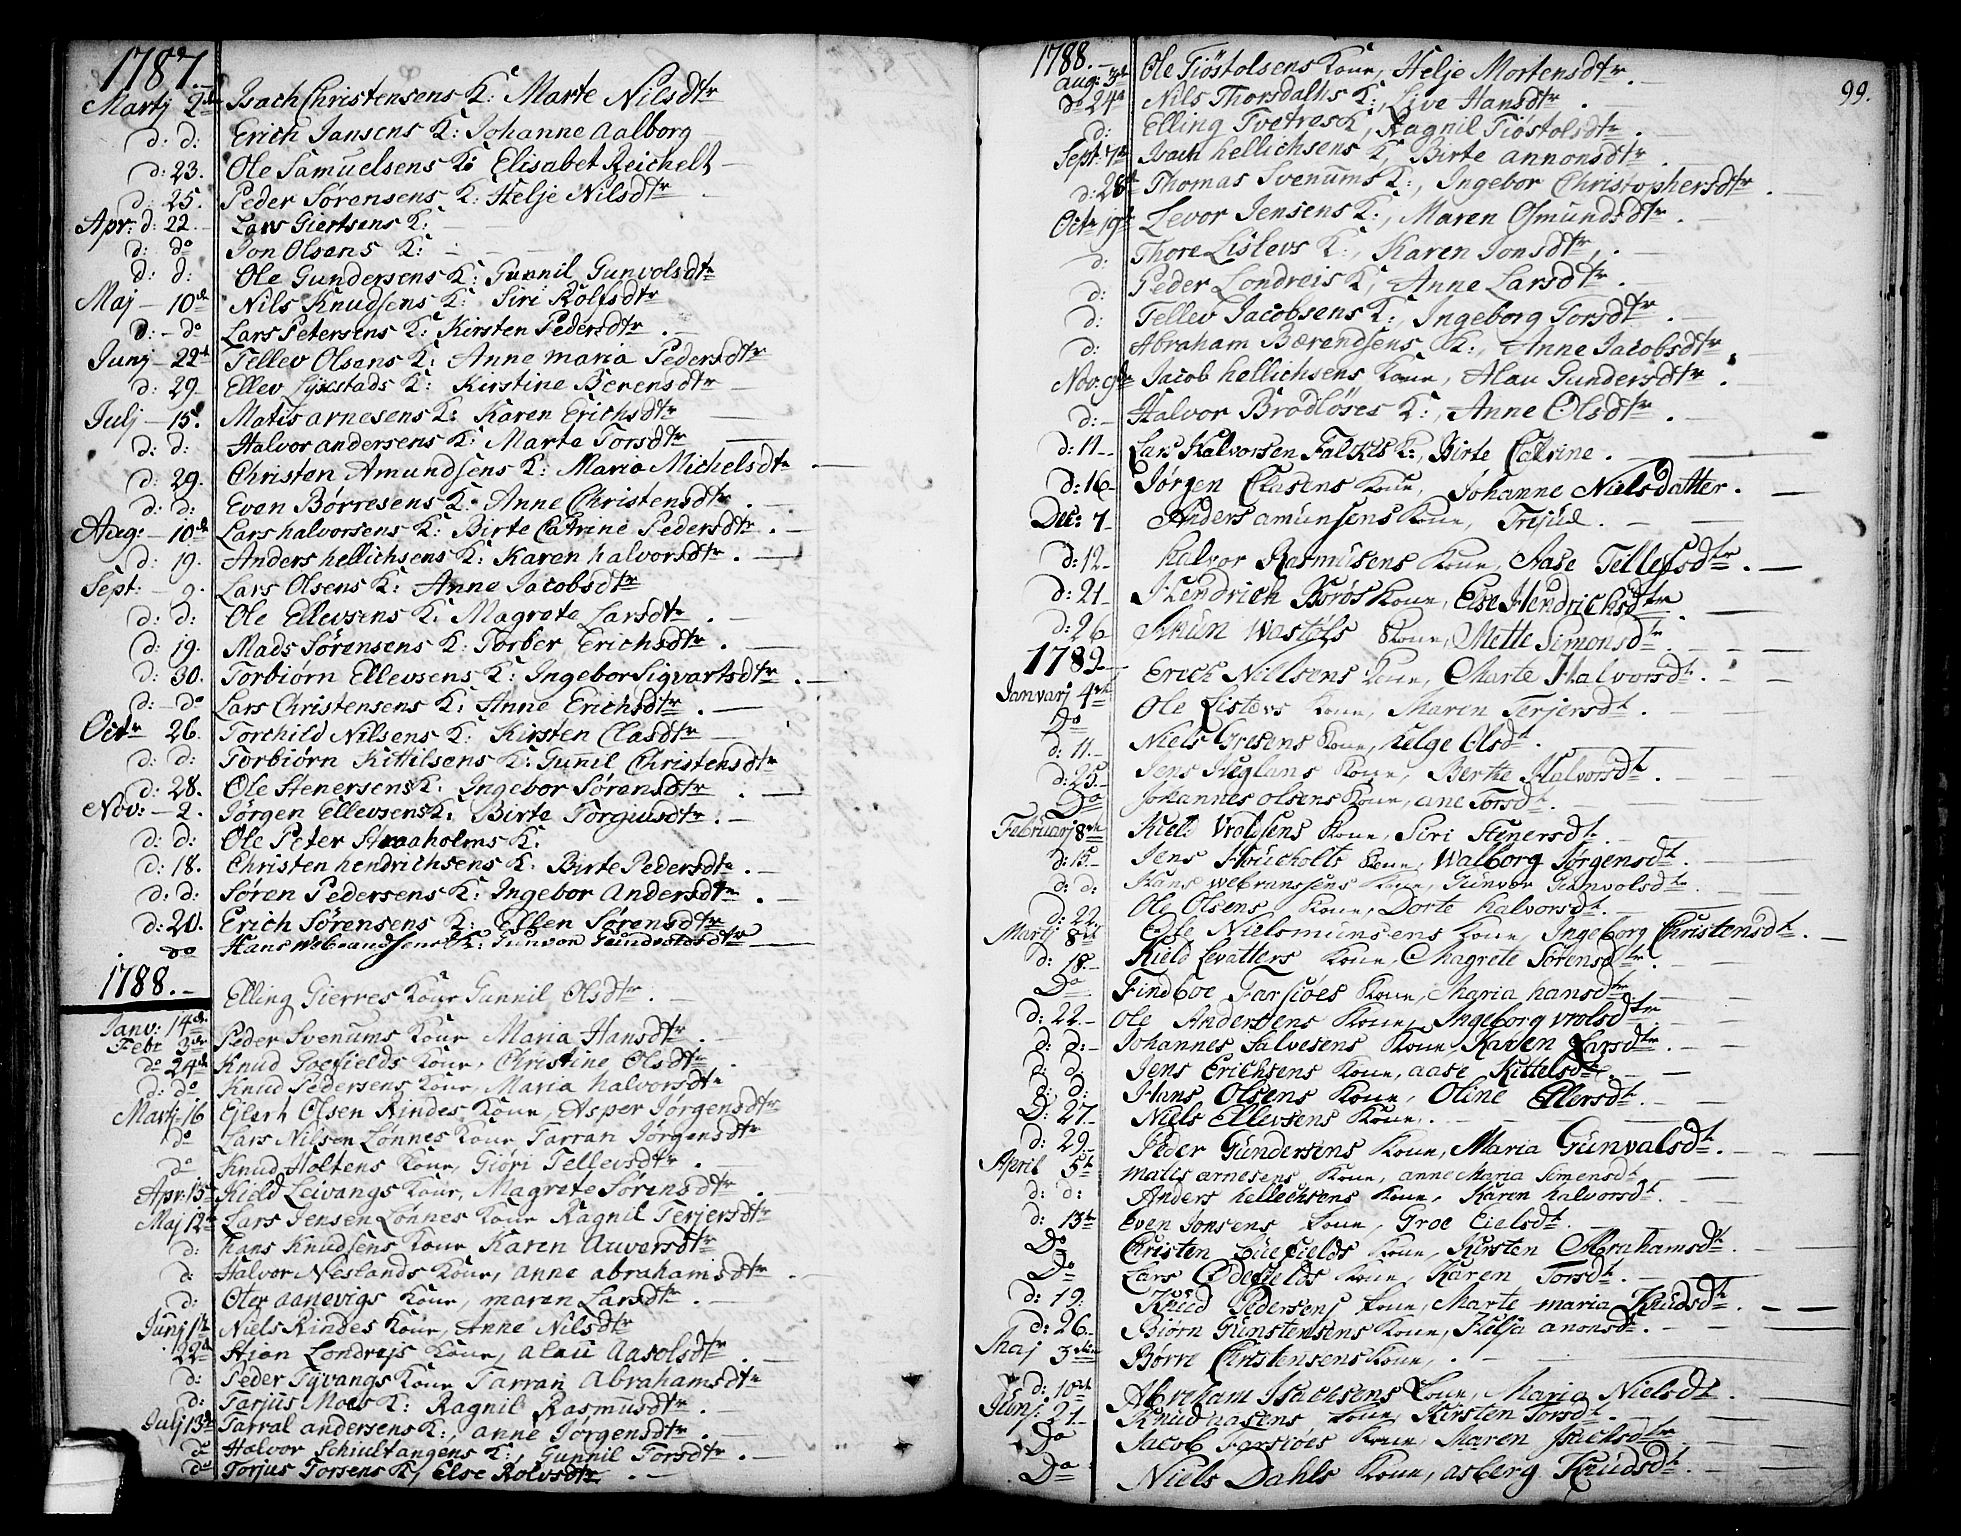 1787.
Martj 2d Isach Christensens K: Marte Nilsdtr
d: d: Erich Jansens K: Johanne Aalborg
d: 23. Ole Samuelsens K: Elisabet Reichelt
d: 25. Peder Sørensens K: Helje Nilsdtr
Apr: d: 22. Lars Giertsens K:
d: do Jon Olsens K:
d: d: Ole Gundersens K: Gunnil Gunvolsdtr
Maj 10de Nils Knudsens K: Siri Rolfsdtr
d: do Lars Petersens K: Kirsten Pedersdtr.
Junj 22d Tellev Olsens K: Anne maria Pedersdtr
d: 29 Ellev Lystads K: Kirstine Berensdtr
Julj 15. Matis arnesens K: Karen Erichsdtr
d: d: Halvor andersens K: Marte Torsdtr
d: 29. Christen Amundsens K: Maria Michelsdtr
d: d: Even Børresens K: Anne Christensdtr.
Aug: 10de Lars halvorsens K: Birte Catrine Pedersdtr.
d: 19. Anders hellichsens K: Karen halvorsdtr.
Sept: 9. Lars Olsens K: Anne Jacobsdtr
d: d: Ole Ellevsens K: Magrete Larsdtr.
d: 19. Mads Sørensens K: Torber Erichsdtr.
d: 30. Torbiørn Ellevsens K: Ingebor Sigvartsdtr.
d: do Lars Christensens K: Anne Erichsdtr.
Octr 26. Torchild Nilsens K: Kirsten Clasdtr
d: d: Torbiørn Kittilsens K: Gunnil Christensdtr
d: 28. Ole Stenersens K: Ingebor Sørensdtr.
Nov: 2. Jørgen Ellevsens K: Birte Torgiusdtr.
d: d: Ole Peter Straaholms K:
d: 18. Christen hendrichsens K: Birte Pedersdtr.
d: d: Søren Pedersens K: Ingebor Andersdtr.
d: 20. Erich Sørensens K: Ellen Sørensdtr
do Hans K: Gunvor
1788.
Janv: 14de Elling Gierres Koue Gunnil Olsdtr.
Febr 3de Peder Svenums Koue Maria Hansdtr.
do 24de Knud Koue, Christine Olsdtr.
d: do Knud Pedersens Koue, Maria halvorsdtr
Martj 16 Eilert Olsen Rindes Koue, Asper Jørgensdtr
do Lars Nilsen Lønnes Koue Tarran Jørgensdtr
do Knud Holtens Koue, Giøri Tellevsdtr.
Apr: 13 Kield Leivangs Koue, Magrete Sørensdtr.
Maj 12te Lars Jensen Lønnes Koue Ragnil Terjersdtr
d: hans Knudsens Koue Karen Auversdtr
d: Halvor Neslands Koue, anne abrahamsdtr.
d: Oter aanevigs Koue, maren Larsdtr.
Junj 1te Niels Rindes Koue, Anne Nilsdtr
22d Stian Londreis Koue, alau Aasolsdtr.
d: Peder Tyvangs Koue Tarran Abrahamsdtr
d: Tarjus Moes K: Ragnil Rasmusdtr.
Julj 13de Tarral andersens K:, anne Jørgensdtr.
do Halvor Schiultangens K:, Gunnil Torsdtr.
do Torjus Torsens K, Else Rolvsdtr.
99.
1788.
aug: 3de Ole Tiøstolsens Koue, Helje Mortensdtr.
do 24d Nils Thorsdalls K:, Live Hansdtr.
d: Elling Tvetres K, Ragnil Tiøstolsdtr.
Sept: 7de Isach hellichsens K, Birte annonsdtr.
d: 28d Thomas Svenums K:, Ingebor Christophersdtr.
Octr 19d Levor Jensens K:, Maren Osmundsdtr.
d: Thore Lislevs K:, Karen Jonsdtr,
d: Peder Londreis K, Anne Larsdtr.
d: Tellev Jacobsens K:, Ingeborg Torsdtr.
d: Abraham Bærendsens K:, Anne Jacobsdtr.
Nov: 9de Jacob hellichsens Koue, Alau Gundersdtr.
d: Halvor Brodløses K:, Anne Olsdtr.
d: 11 Lars Halvorsen Falckes K:, Birte Catrine.
d: 16 Jørgen Clasens Koue, Johanne Nielsdatter.
Dec: 7 Anders amunsens Koue,
d: 12 halvor Rasmusens Koue, Aase Tellefsdtr.
d: 21 Hendrich Borøs Koue, Else Hendrichsdtr.
d: 26 Koue, Mette Simonsdtr.
1789. Erich Nielsens Koue, Marte Halvorsdt.
Janvarj 4de Ole Koue, Maren Terjersdt.
Do Niels Koue, helge Olsdt.
d: 11. Jens Heglans Koue, Berthe Halvorsdt.
d: 25. Johannes olsens Koue, ane Torsdt.
Do Kield Koue, Siri Stenersdt.
Februarj 8de Jens Koue, Walborg Jørgensdt.
d: 15 Hans Koue, Gunvor Gunvolsdt.
d: d: Ole Olsens Koue, Dorte halvorsdt.
d: 22. Koue, Ingeborg Christensdt.
Martj 8de Kield Koue, Magrete Sørensdtr.
d: 18. Findboe Farsiøes Koue, Maria hansdtr
Do Ole Andersens Koue, Ingeborg vrolsdtr.
d: 22. Johannes Salvesens Koue, Karen Larsdtr.
d: d: Jens Erichsens Koue, aase Kittelsdtr.
d: d: Hans Olsens Koue, Oline Ellersdt.
D: 27. Niels Ellevsens Koue.
d: 29. Peder Gundersens Koue, Maria Gunvalsdt.
April 5t matis arnesens Koue, anne Maria Simensdt
d: d: Anders hellechsens Koue, Karen halvorsdt.
d: 13t Even Jonsens Koue, Groe Eielsdt.
Do Christen Koue, Kirsten Abrahamsdt.
Do Lars Ødefields Koue, Karen Torsdt.
d: 19. Knud Pedersens Koue, Marte maria Knudsdt.
d: 26. Biørn Gunstensens Koue, Helja anonsdt.
Maj 3die Børre Christensens Koue,
d: 10de Abraham Isachsens Koue, Maria Nielsdt.
Junj: 21 Knud aasens Koue, Kirsten Torsdt.
Do Jacob Farsiøes Koue, Maren Isachsdtr.
Do Niels Dahls Koue, asberg Knudsdt.